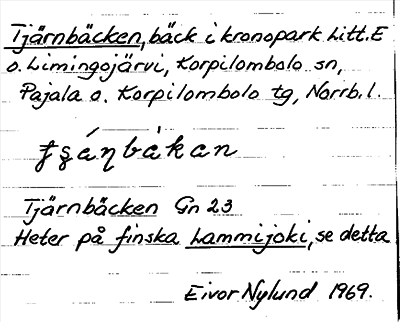 Tjärnbäcken, bäck i kronopark Litt. E
o. Limingojärvi, Korpilombolo sn,
Pajala o. Korpilombolo tg, Norrb. l.
Tjärnbäcken Gn 23
Heter på finska Lammijoki, se detta
Eivor Nylund 1969.